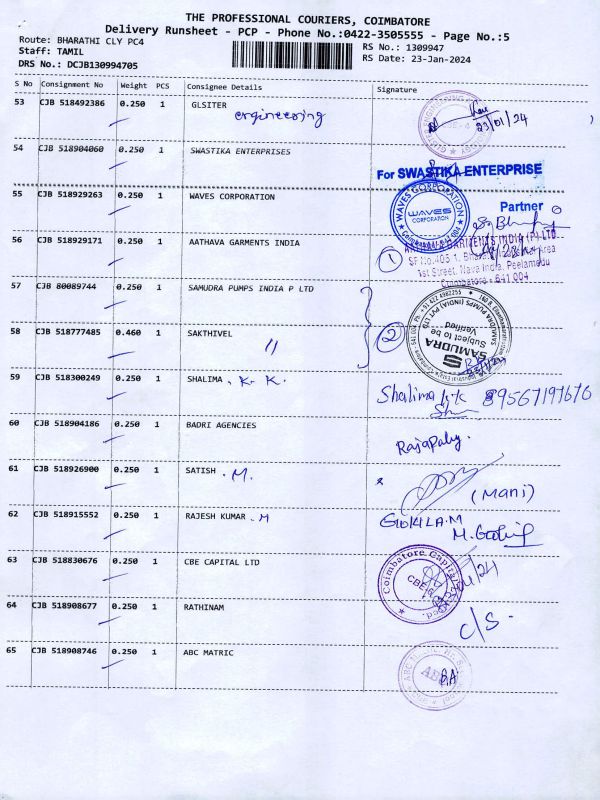 THE PROFESSIONAL COURIERS, COIMBATORE
Delivery Runsheet - PCP - Phone No.:0422-3505555 - Page No.:5
Route: BHARATHI CLY PC4 RS No.: 1309947
Staff: TAMIL RS Date: 23-Jan-2024
DRS No.: DCJB130994705
S No Consignment No Weight PCS Consignee Details Signature
53 CJB 518492386 0.250 1 GLSITER
engineering
23/01/24
54 CJB 518904060 0.250 1 SWASTIKA ENTERPRISES
For SWASTIKA ENTERPRISE
Partner
55 CJB 518929263 0.250 1 WAVES CORPORATION
WAVES CORPORATION
WAVES
CORPORATION
56 CJB 518929171 0.250 1 AATHAVA GARMENTS INDIA
1
GARMENTS INDIA (P) LTD.
SF No.405 1, Area
1st Street, Nava India, Peelamedu
Coimbatore - 641 004
57 CJB 80089744 0.250 1 SAMUDRA PUMPS INDIA P LTD
58 CJB 518777485 0.460 1 SAKTHIVEL
"
2
SAMUDRA
Subject to be
Verified
59 CJB 518300249 0.250 1 SHALIMA . K. K.
Shalima
60 CJB 518904186 0.250 1 BADRI AGENCIES
61 CJB 518926900 0.250 1 SATISH . M.
(Mani)
62 CJB 518915552 0.250 1 RAJESH KUMAR . M
GOKILA.M
63 CJB 518830676 0.250 1 CBE CAPITAL LTD
Coimbatore Capital
CBE
64 CJB 518908677 0.250 1 RATHINAM
C/S.
65 CJB 518908746 0.250 1 ABC MATRIC
ABC